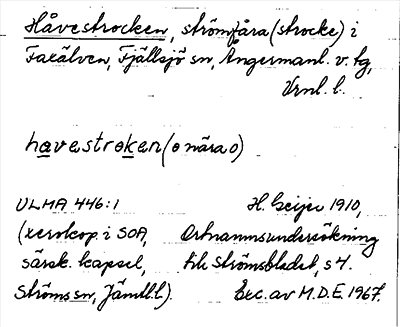 Håvestrocken, strömfåra (strocke) i
Faxälven, Fjällsjö sn, Ångermanl. v. tg,
Vrnl. l.
havestroken (o nära o)
ULMA 446:1 H. Geijer 1910,
(xerokop. i SOA, Ortnamnsundersökning
särsk. kapsel, till Strömsbladet, s 4.
Ströms sn, Jämtl.l.). Exc. av M.D.E. 1967.